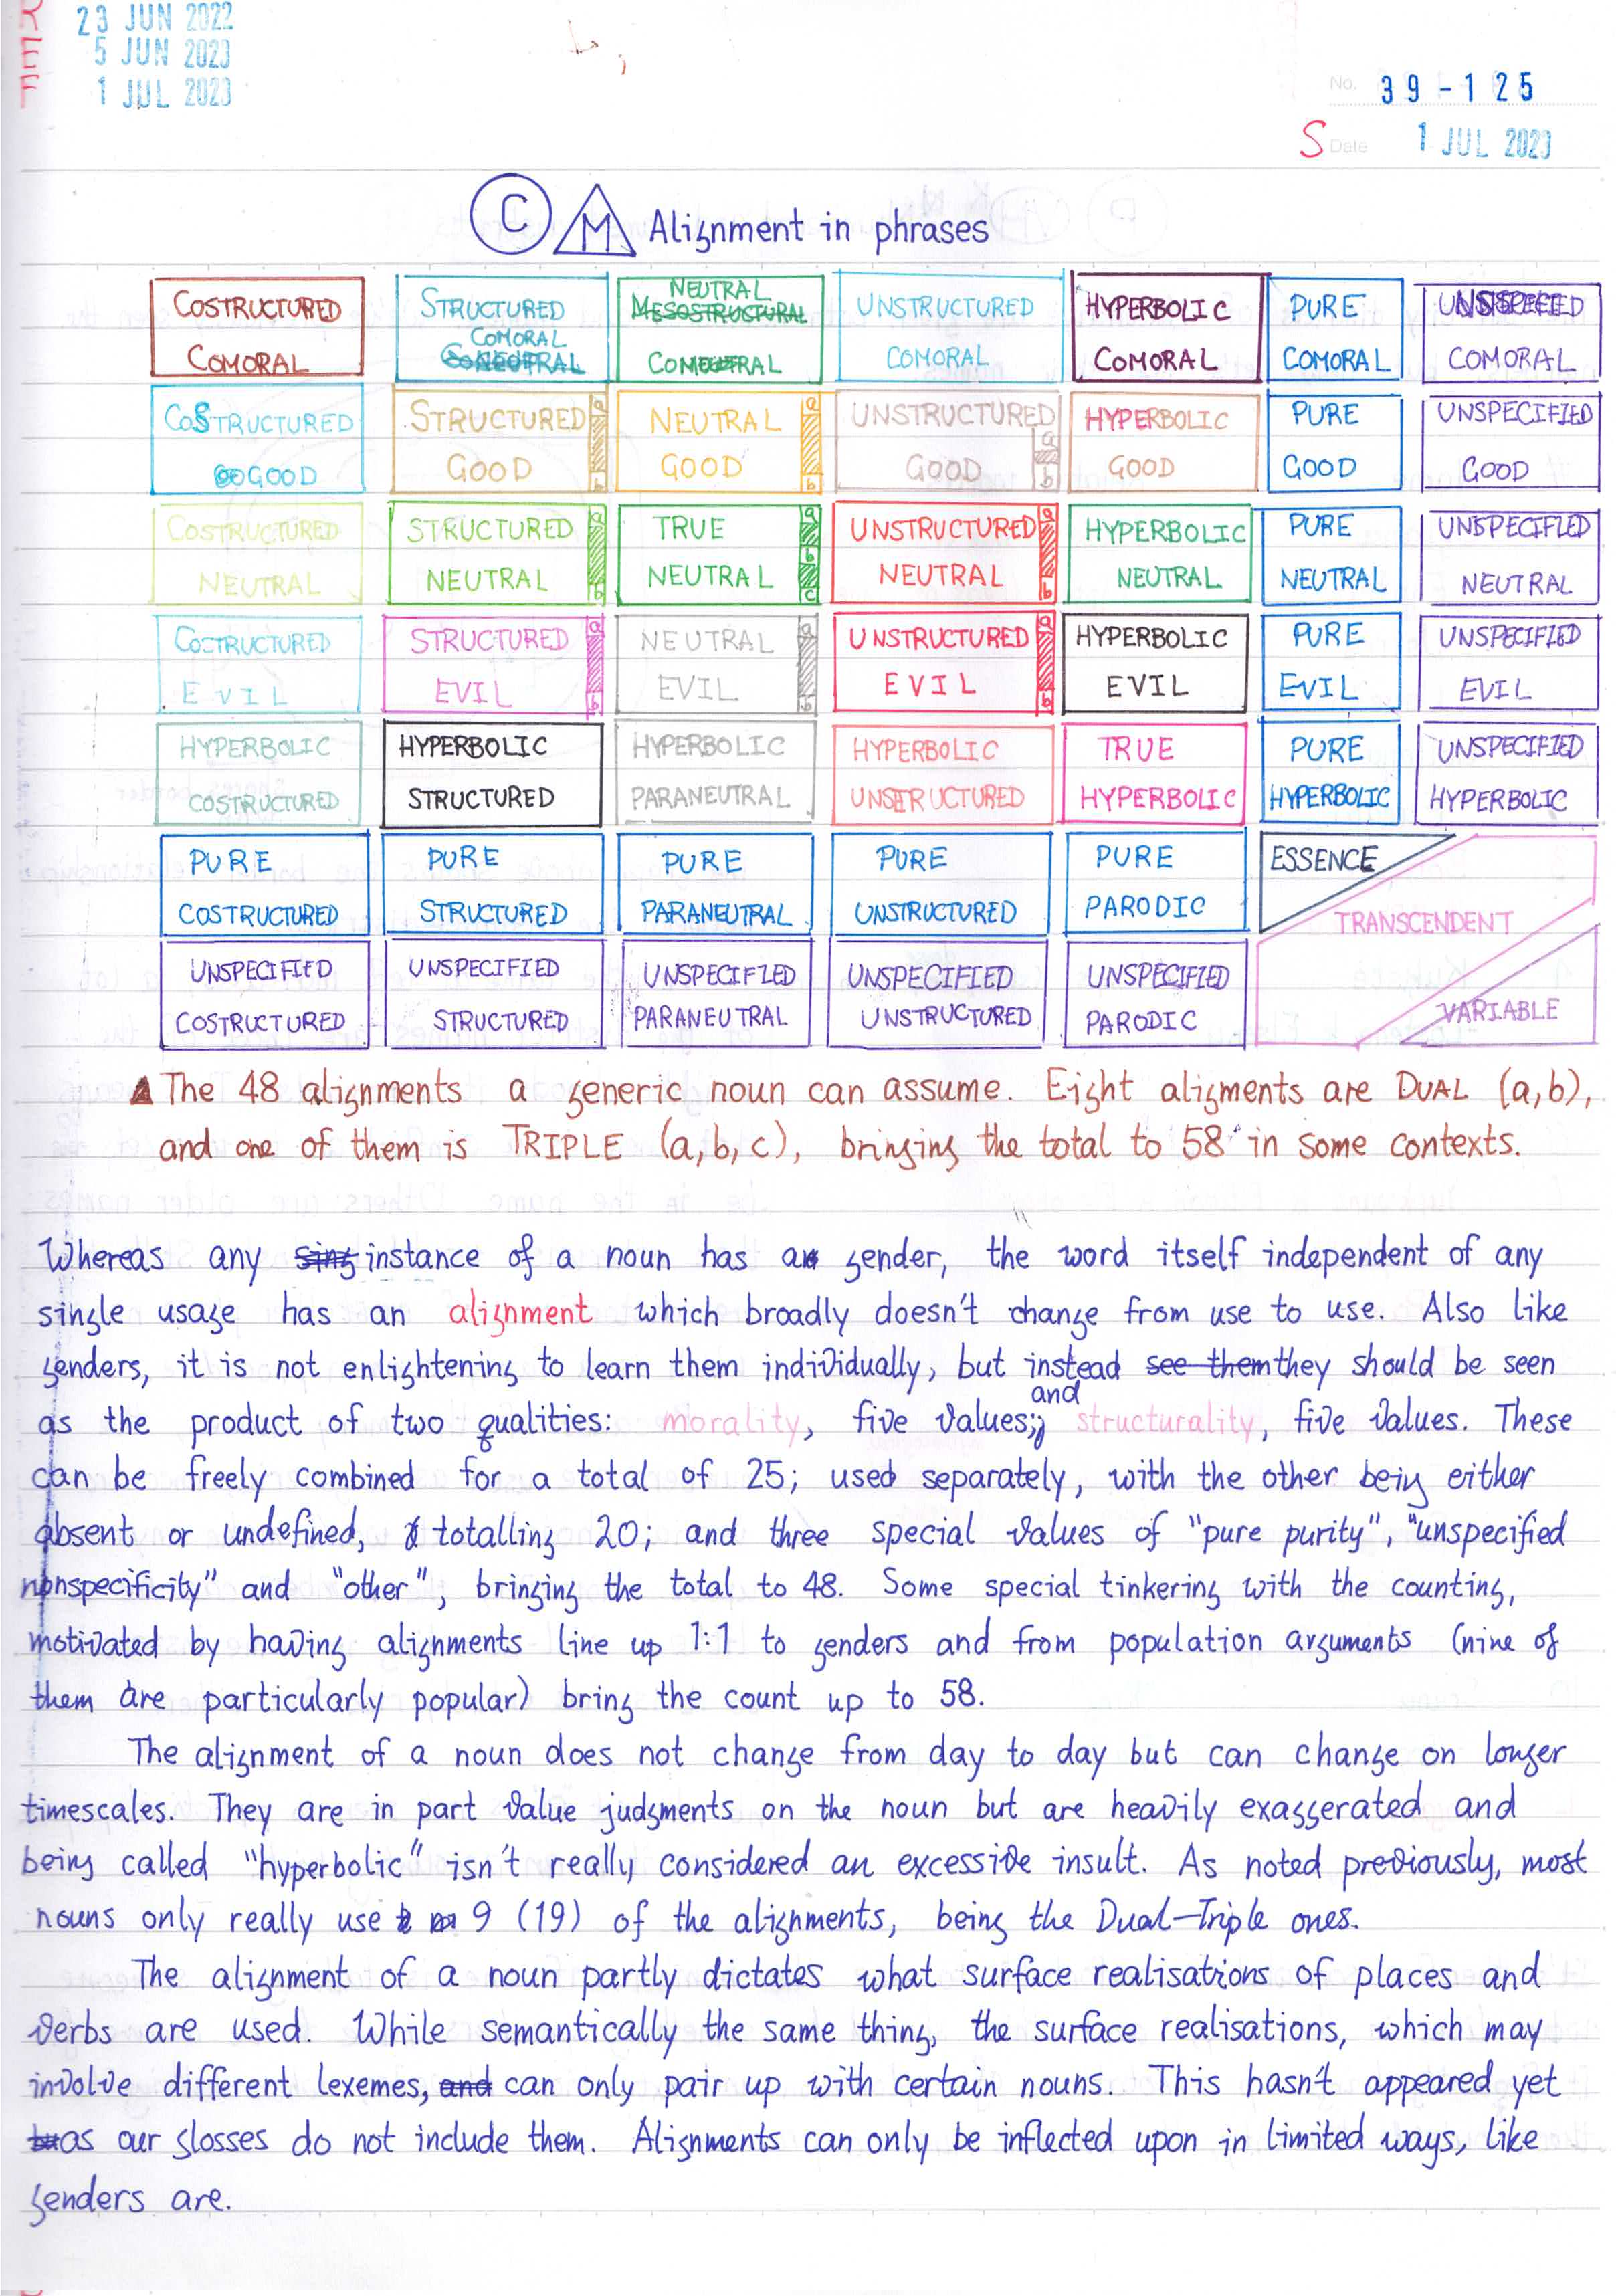 REF
23 JUN 2022
5 JUN 2023
1 JUL 2023
No. 39-125
S Date 1 JUL 2023
C M Alignment in phrases
COSTRUCTURED COMORAL
STRUCTURED COMORAL
NEUTRAL
UNSTRUCTURED COMORAL
HYPERBOLIC COMORAL
PURE COMORAL
COMORAL
COSTRUCTURED GOOD
STRUCTURED GOOD a b
NEUTRAL GOOD a b
UNSTRUCTURED GOOD a b
HYPERBOLIC GOOD
PURE GOOD
UNSPECIFIED GOOD
COSTRUCTURED NEUTRAL
STRUCTURED NEUTRAL a b
TRUE NEUTRAL a b c
UNSTRUCTURED NEUTRAL a b
HYPERBOLIC NEUTRAL
PURE NEUTRAL
UNSPECIFIED NEUTRAL
COSTRUCTURED EVIL
STRUCTURED EVIL a b
NEUTRAL EVIL a b
UNSTRUCTURED EVIL a b
HYPERBOLIC EVIL
PURE EVIL
UNSPECIFIED EVIL
HYPERBOLIC COSTRUCTURED
HYPERBOLIC STRUCTURED
HYPERBOLIC PARANEUTRAL
HYPERBOLIC UNSTRUCTURED
TRUE HYPERBOLIC
PURE HYPERBOLIC
UNSPECIFIED HYPERBOLIC
PURE COSTRUCTURED
PURE STRUCTURED
PURE PARANEUTRAL
PURE UNSTRUCTURED
PURE PARODIC
ESSENCE
TRANSCENDENT
UNSPECIFIED COSTRUCTURED
UNSPECIFIED STRUCTURED
UNSPECIFIED PARANEUTRAL
UNSPECIFIED UNSTRUCTURED
UNSPECIFIED PARODIC
VARIABLE
▲ The 48 alignments a generic noun can assume. Eight aligments are DUAL (a,b),
and one of them is TRIPLE (a,b,c), bringing the total to 58 in some contexts.
Whereas any sing instance of a noun has a gender, the word itself independent of any
single usage has an alignment which broadly doesn't change from use to use. Also like
genders, it is not enlightening to learn them individually, but instead see them they should be seen
as the product of two qualities: morality, five values; and structurality, five values. These
can be freely combined for a total of 25; used separately, with the other being either
absent or undefined, totalling 20; and three special values of "pure purity", "unspecified
nonspecificity" and "other", bringing the total to 48. Some special tinkering with the counting,
motivated by having alignments line up 1:1 to genders and from population arguments (nine of
them are particularly popular) bring the count up to 58.
The alignment of a noun does not change from day to day but can change on longer
timescales. They are in part value judgments on the noun but are heavily exaggerated and
being called "hyperbolic" isn't really considered an excessive insult. As noted previously, most
nouns only really use 9 (19) of the alignments, being the Dual-Triple ones.
The alignment of a noun partly dictates what surface realisations of places and
verbs are used. While semantically the same thing, the surface realisations, which may
involve different lexemes, and can only pair up with certain nouns. This hasn't appeared yet
as our glosses do not include them. Alignments can only be inflected upon in limited ways, like
genders are.